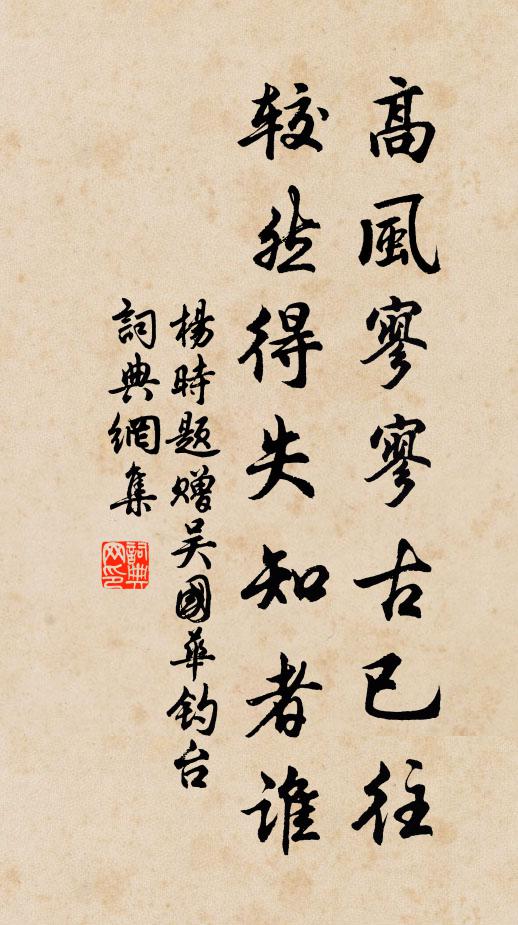 高風寥寥古已往
較然得失知者谁
楊時題赠吴國華钓台
詞典網集
詞典网印